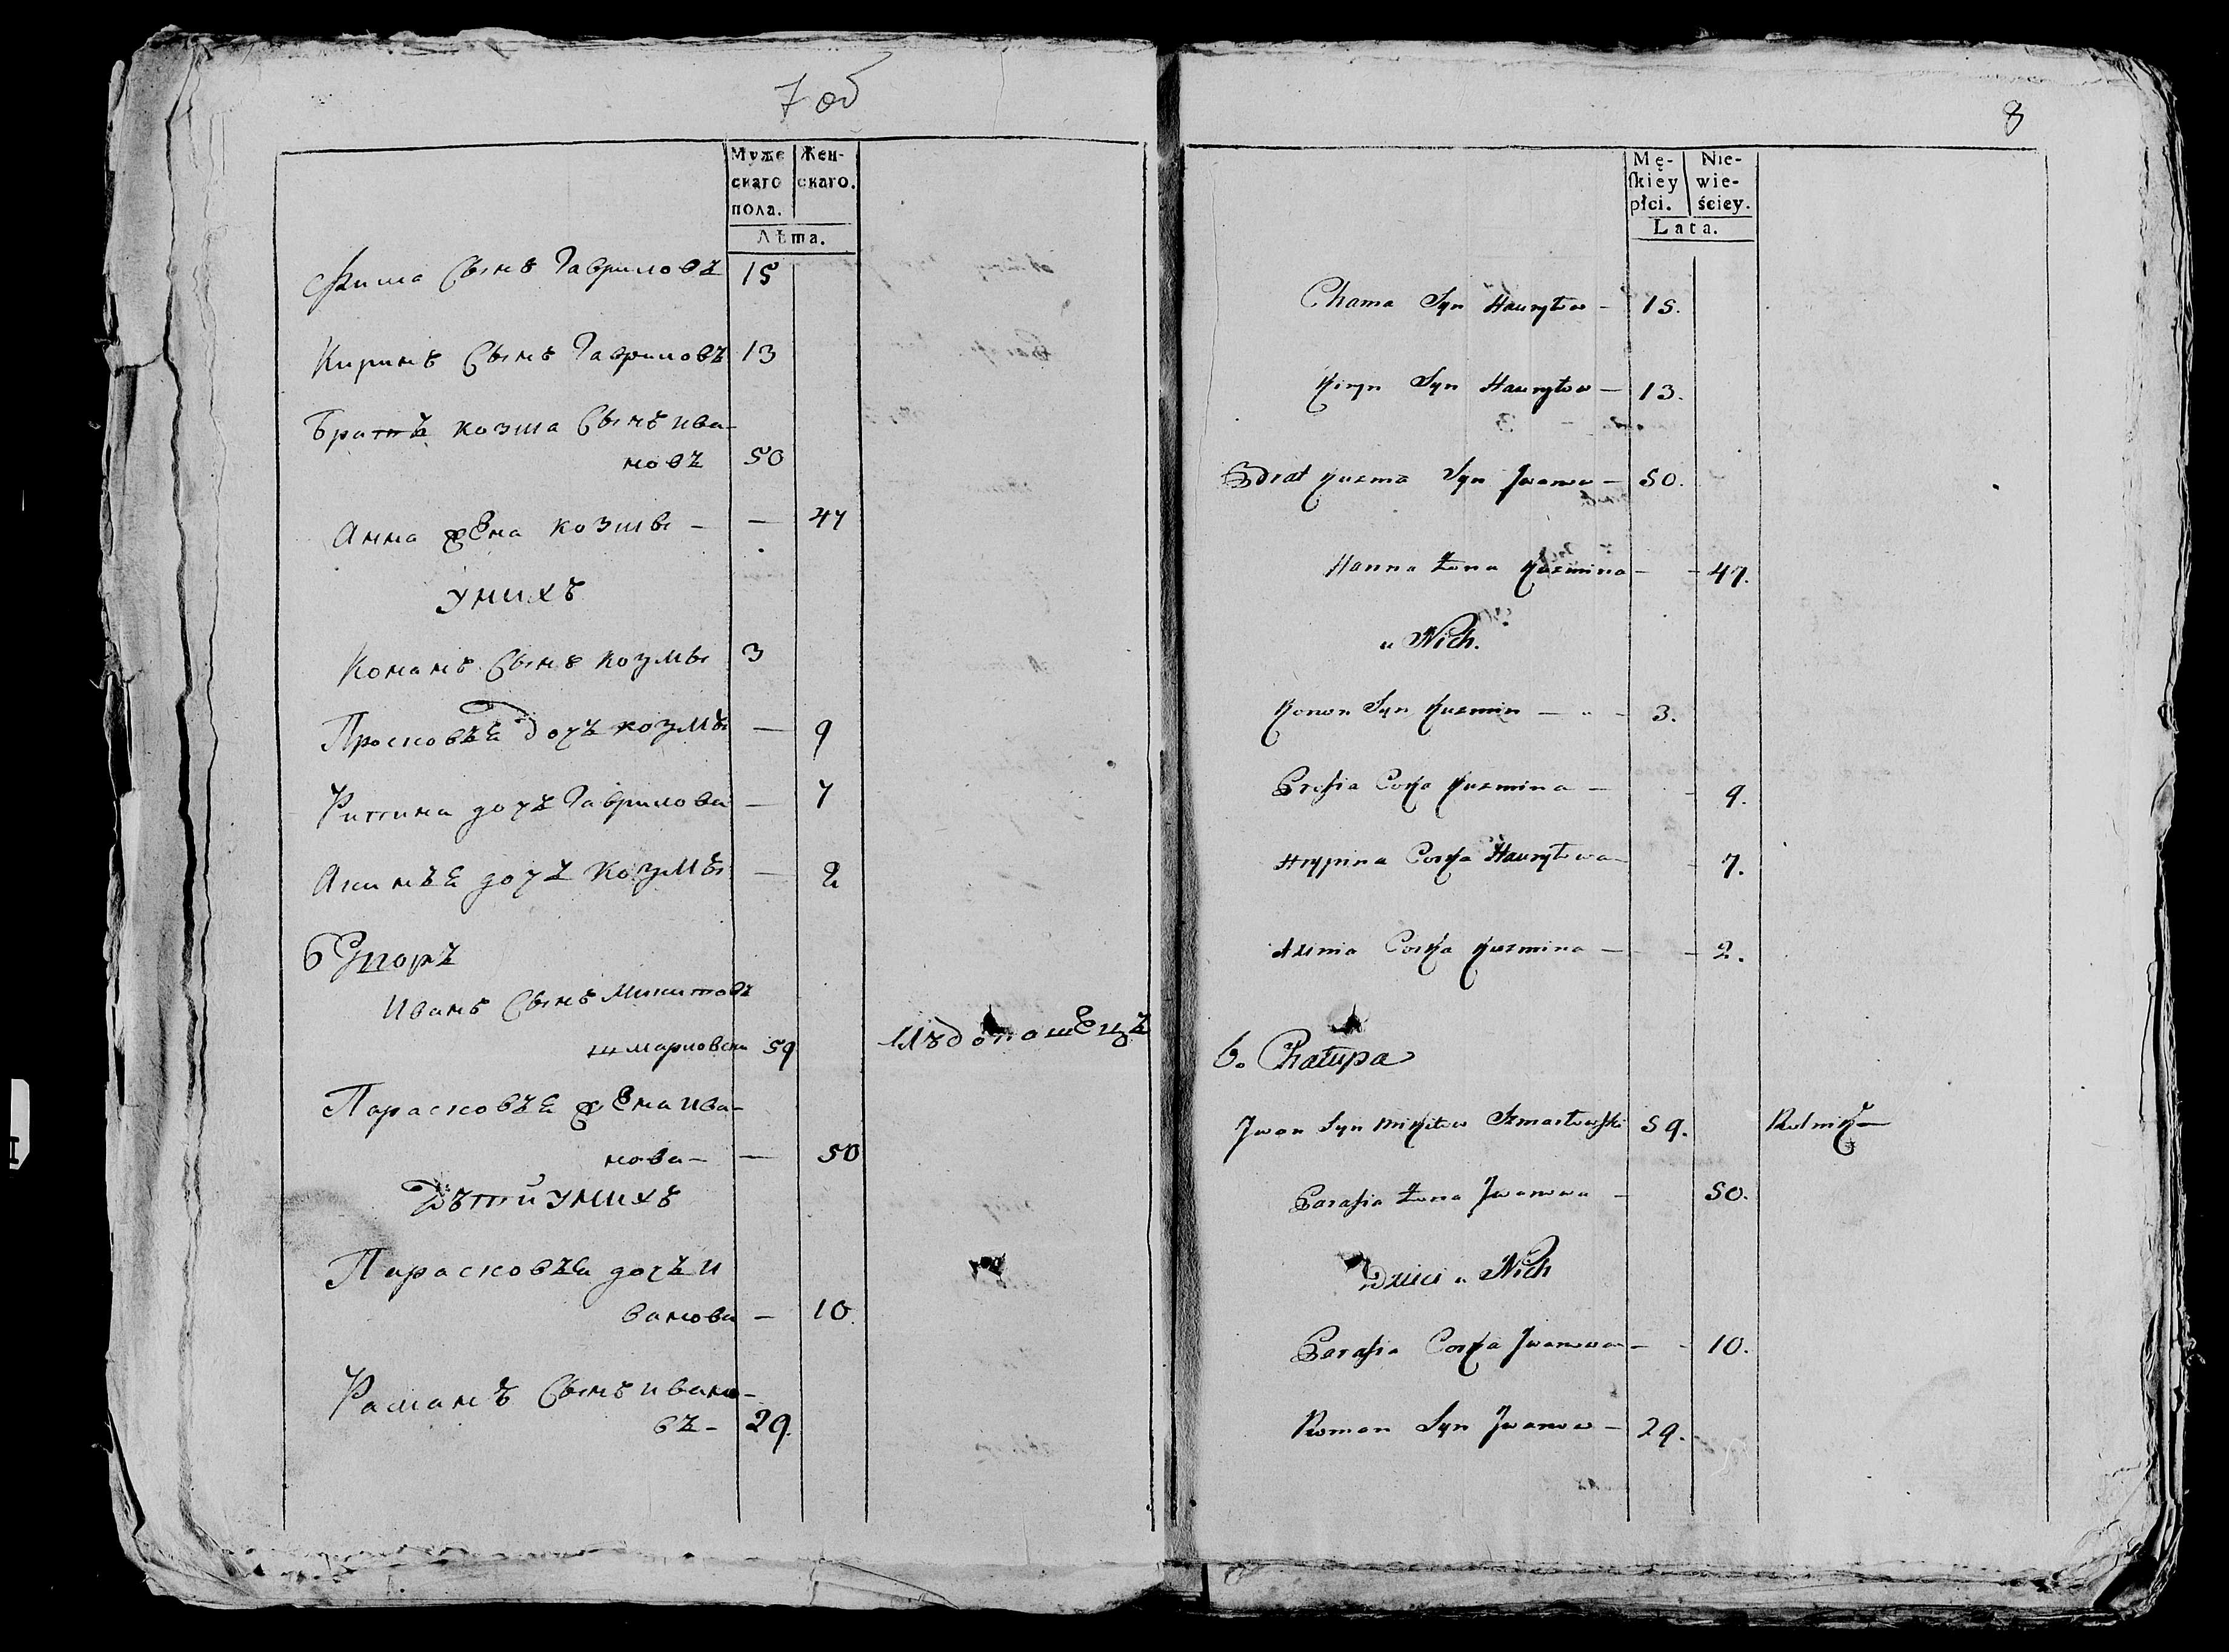 7 об
Муже
скаго
пола.
Жен-
скаго.
Лѣта.
Сынъ Гавриловъ 15
Киринъ Сынъ Гавриловъ 13
Братъ козма Сынъ ива-
новъ 50
Анна жена козмы - — 47
У нихъ
Конанъ Сынъ козмы 3
Просковъя дочъ козмы — 9
дочъ Гаврилова — 7
дочъ козмы — 2
6 Двторъ
Иванъ Сынъ Микитовъ
шмарловски 59
Парасковъя жена ива-
нова — — 50
Дѣти у нихъ
Парасковъя дочъ и
ванова — 10
Раманъ Сынъ ивано-
въ - 29.
8
Mę-
ſkiey
płci.
Nie-
wie-
ściey.
Lata.
Chama Syn Hawryłow — 15.
Kiryn Syn Hawryłow — 13.
Brat Kuzma Syn Jwanow — 50.
Hanna Żona Kuzmina — - 47.
u Nich.
Konon Syn Kuzmin — „ - 3.
Corka Kuzmina — - 9.
Hrypina Corka Hawryłowa - 7.
Corka Kuzmina — - 2.
6. Chałupa
Jwan Syn Mikitow Szmarłowſki 59. Rolnik —
Paraſia Żona Jwanowa — 50.
Dzieci u Nich
Paraſia Corka Jwanowa — - 10.
Roman Syn Jwanow — 29.